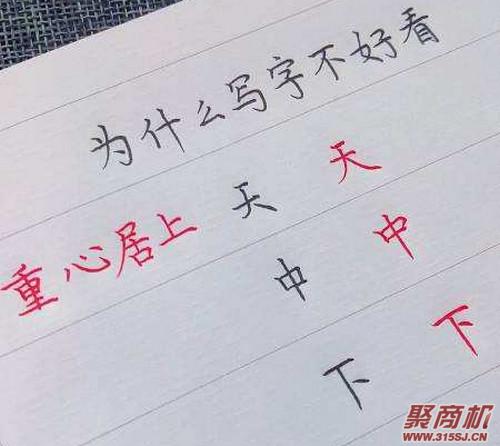 为什么写字不好看
重心居上 天 天
中 中
下 下
聚商机
www.315SJ.CN